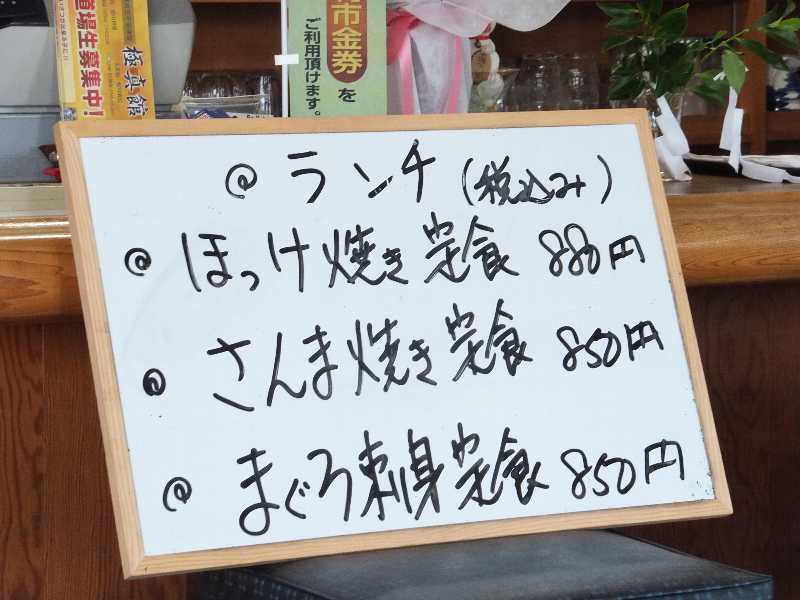 道場生募集中!
極真館
市金券を
ご利用頂けます。
@ ランチ (税込み)
@ ほっけ焼き定食 880円
@ さんま焼き定食 850円
@ まぐろ刺身定食 850円